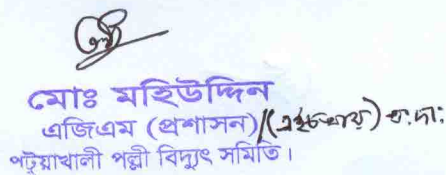 মোঃ মহিউদ্দিন
এজিএম (প্রশাসন)/(এইচআর) অ.দা:
পটুয়াখালী পল্লী বিদ্যুৎ সমিতি।